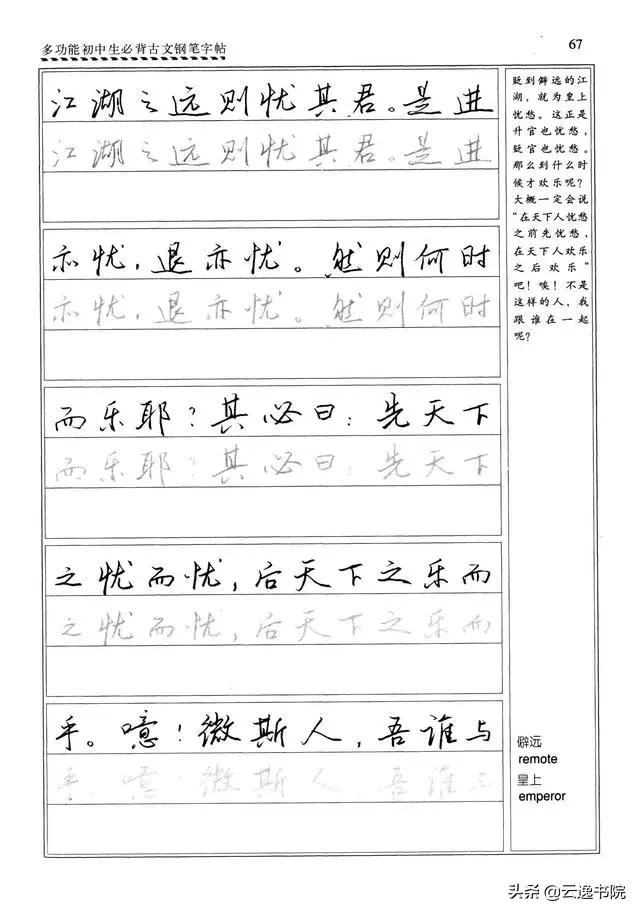 多功能初中生必背古文钢笔字帖
67
江湖之远则忧其君。是进
江湖之远则忧其君。是进
亦忧，退亦忧。然则何时
亦忧，退亦忧。然则何时
而乐耶？其必曰：先天下
而乐耶？其必曰：先天下
之忧而忧，后天下之乐而
之忧而忧，后天下之乐而
乎。噫！微斯人，吾谁与
乎。噫！微斯人，吾谁与
贬到僻远的江
湖，就为皇上
忧愁。这正是
升官也忧愁，
贬官也忧愁。
那么到什么时
候才欢乐呢？
大概一定会说
“在天下人忧愁
之前先忧愁，
在天下人欢乐
之后欢乐”
吧！唉！不是
这样的人，我
跟谁在一起
呢？
僻远
remote
皇上
emperor
头条@云逸书院